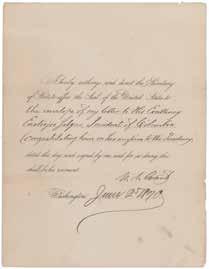 I hereby authorize and direct the Secretary
of State to affix the Seal of the United States to
the envelope of my letter to His Excellency
Eustorjio Salgar, President of Colombia
(congratulating him on his accession to the Presidency)
dated this day and signed by me and for so doing this
shall be his warrant.
U. S. Grant
Washington, June 2d 1870